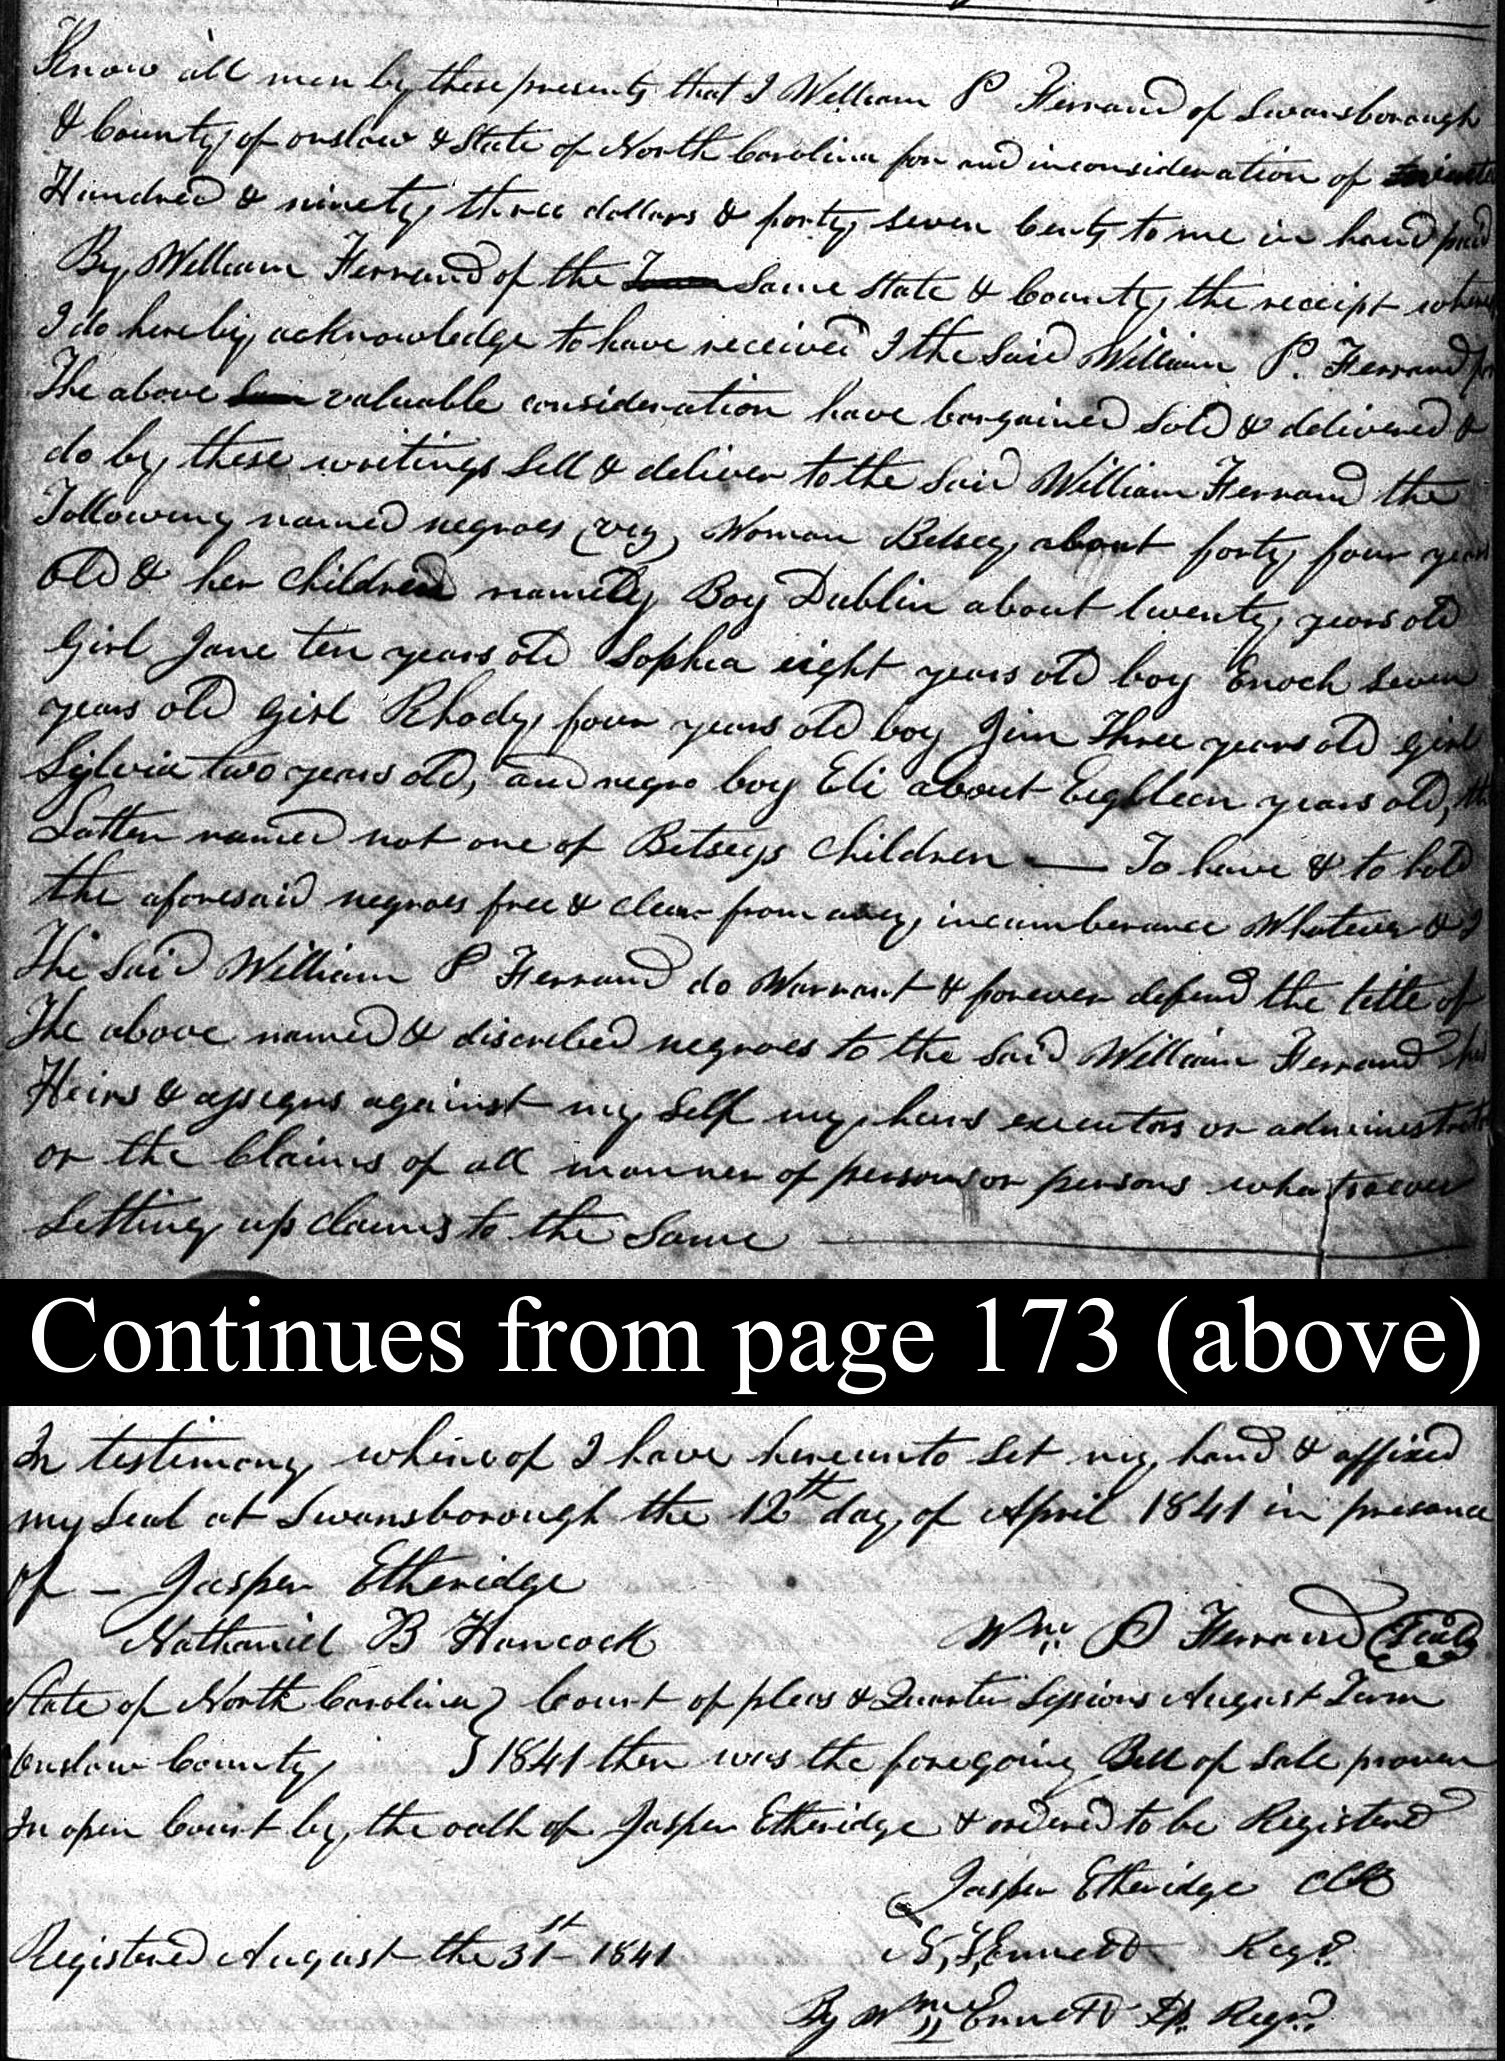 Know all men by these presents that I William P Ferrand of Swansborough
& County of onslow & State of North Carolina for and in consideration of
Hundred & ninety three dollars & forty seven Cents to me in hand paid
By William Ferrand of the Same State & County, the receipt
I do hereby acknowledge to have received I the Said William P. Ferrand for
The above valuable consideration have bargained Sold & delivered &
do by these writings Sell & deliver to the Said William Ferrand the
Following named negroes (viz) Woman Betsey about forty four years
old & her Children namely Boy Dublin about twenty years old
Girl Jane ten years old Sophia eight years old boy Enoch Seven
years old Girl Rhody four years old boy Jim Three years old girl
Sylvia two years old, and negro boy Eli about Eighteen years old, the
Latter named not one of Betseys Children — To have & to hold
the aforesaid negroes free & clear from any incumberance Whatever & I
The Said William P Ferrand do Warrant & forever defend the title of
The above named & discribed negroes to the Said William Ferrand his
Heirs & assigns against my Self my heirs executors or
or the Claims of all manner of person or persons whatsoever
Setting up claims to the Same
Continues from page 173 (above)
In testimony whereof I have hereunto Set my hand & affixed
my Seal at Swansborough the 12th day of April 1841 in presance
of — Jasper Etheridge
Nathaniel B Hancock Wm P Ferrand (Seal)
State of North Carolina } Court of pleas & Quarter Sessions August Term
Onslow County } 1841 then was the foregoing Bill of Sale proven
In open Court by the oath of Jasper Etheridge & ordered to be Registered
Jasper Etheridge Clk
Registered August the 31st 1841 Ennett Regr.
By Wm Ennett Dp. Regr.